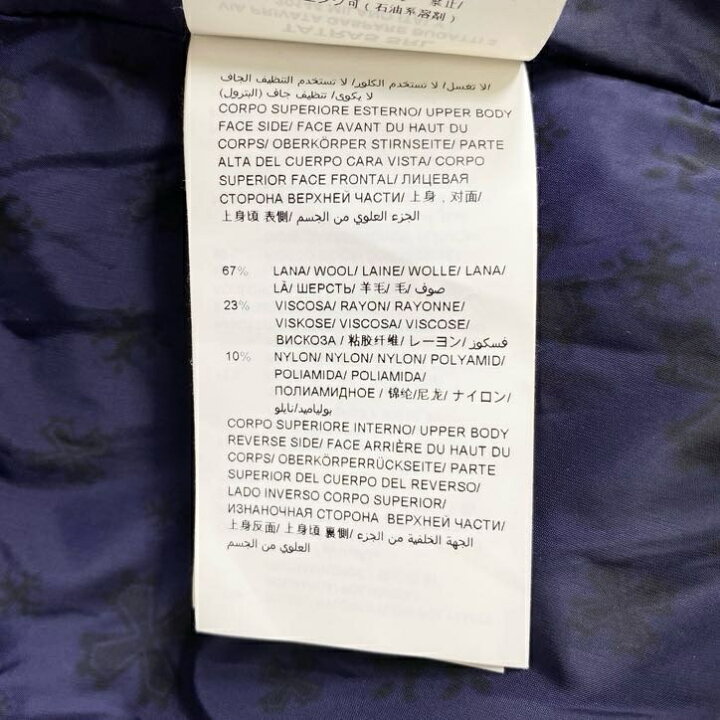 ング可 ( 石油系溶剤 )
TATRAS SRL
VIA PRIVATA GASPARE BUGATTI 3
لا تغسل/ لا تستخدم الكلور/ لا تستخدم التنظيف الجاف/
لا يكوى/ تنظيف جاف (البترول)
CORPO SUPERIORE ESTERNO/ UPPER BODY
FACE SIDE/ FACE AVANT DU HAUT DU
CORPS/ OBERKÖRPER STIRNSEITE/ PARTE
ALTA DEL CUERPO CARA VISTA/ CORPO
SUPERIOR FACE FRONTAL/ ЛИЦЕВАЯ
СТОРОНА ВЕРХНЕЙ ЧАСТИ/ 上身 , 对面/
上身頃 表側/ الجزء العلوي من الجسم
67% LANA/ WOOL/ LAINE/ WOLLE/ LANA/
LÃ/ ШЕРСТЬ/ 羊毛/ 毛/ صوف
23% VISCOSA/ RAYON/ RAYONNE/
VISKOSE/ VISCOSA/ VISCOSE/
ВИСКОЗА / 粘胶纤维/ レーヨン/ فسكوز
10% NYLON/ NYLON/ NYLON/ POLYAMID/
POLIAMIDA/ POLIAMIDA/
ПОЛИАМИДНОЕ / 锦纶/尼龙/ ナイロン/
بولياميد/نايلو
CORPO SUPERIORE INTERNO/ UPPER BODY
REVERSE SIDE/ FACE ARRIÈRE DU HAUT DU
CORPS/ OBERKÖRPERRÜCKSEITE/ PARTE
SUPERIOR DEL CUERPO DEL REVERSO/
LADO INVERSO CORPO SUPERIOR/
ИЗНАНОЧНАЯ СТОРОНА ВЕРХНЕЙ ЧАСТИ/
上身反面/ 上身頃 裏側/ الجهة الخلفية من الجزء
العلوي من الجسم